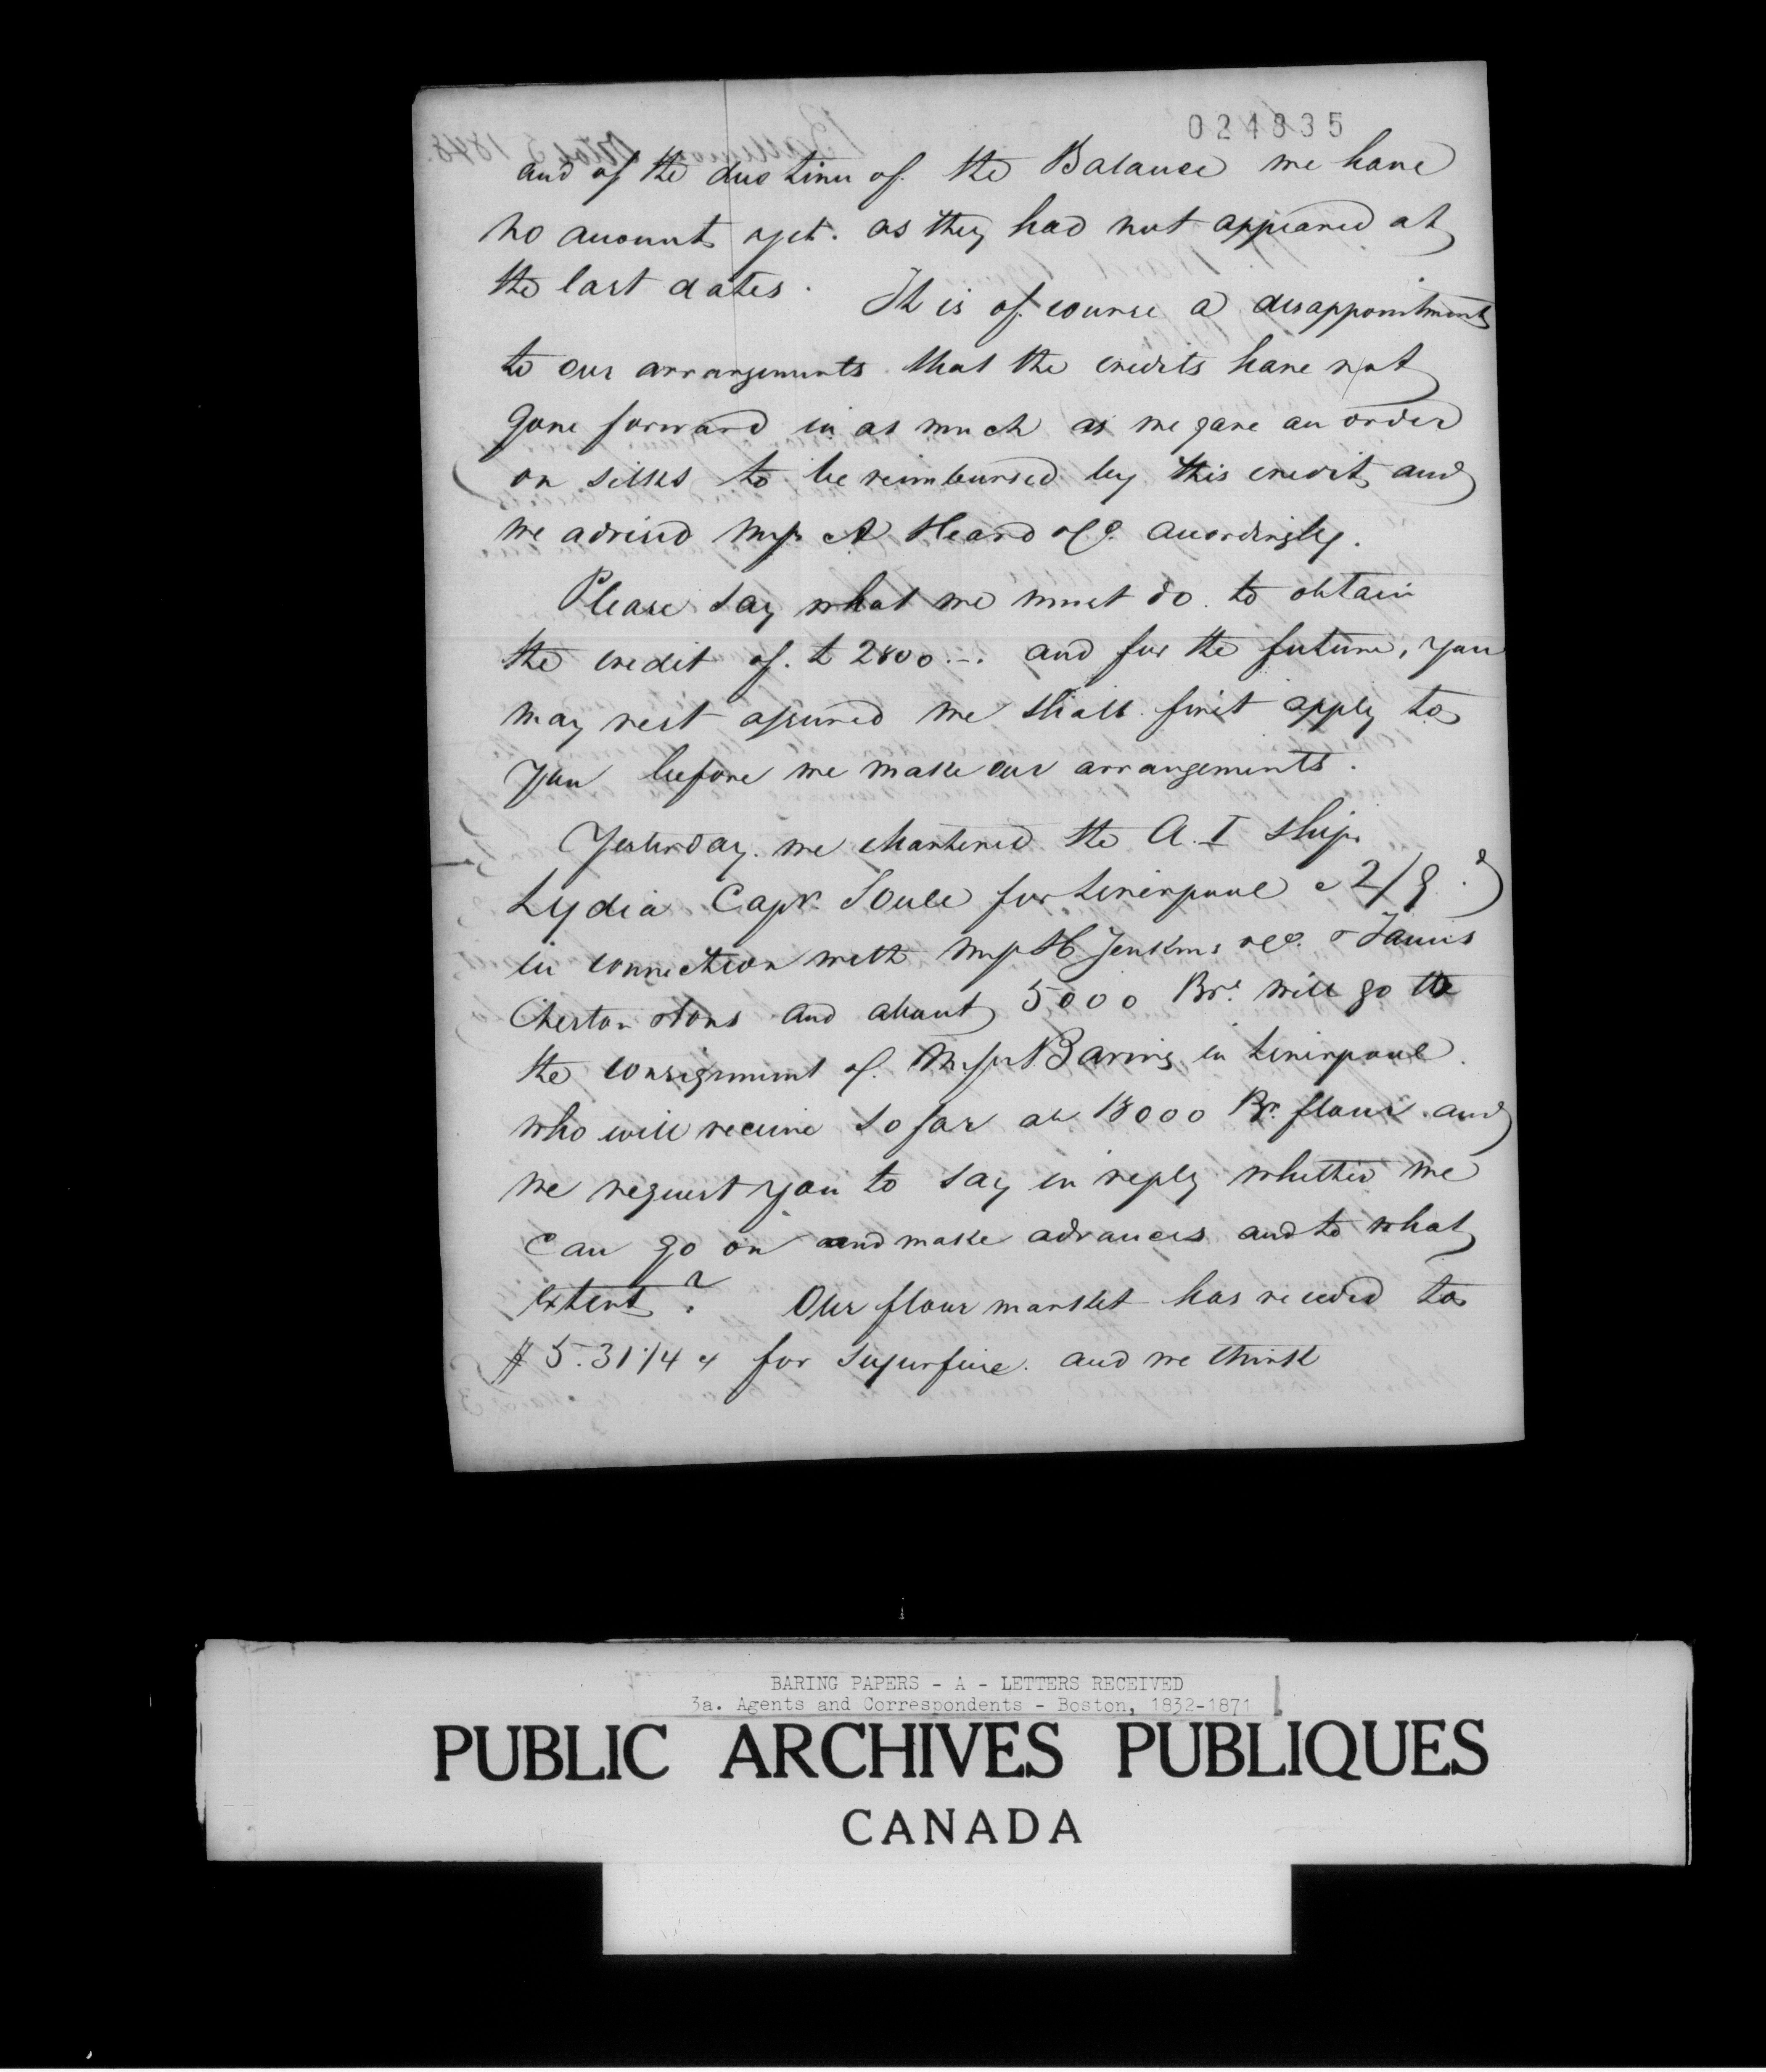 024835
and of the due time of the Balance we have
no account yet. as they had not appeared at
the last dates. It is of course a disappointment
to our arrangements that the credits have not
gone forward in as much as we gave an order
on silks to be reimbursed by this credit and
we advised Mess A Heard & Co. accordingly.
Please say what we must do to obtain
the credit of £ 2800.-. and for the future, you
may rest assured we shall first apply to
you before we make our arrangements.
Yesterday we chartered the A. I ship
Lydia Capt. Soule for Liverpool
in connection with Mess H Jenkins & Co. & James
Cheston & Sons and about 5000 Brs. will go to
the consignment of Messrs Baring in Liverpool.
who will receive so far ab 18000 Br. flour and
we request you to say in reply whether we
can go on and make advances and to what
extent? Our flour market has receded to
$ 5.31 1/4 for superfine. and we think
BARING PAPERS - A - LETTERS RECEIVED
3a. Agents and Correspondents - Boston, 1832-1871
PUBLIC ARCHIVES PUBLIQUES
CANADA